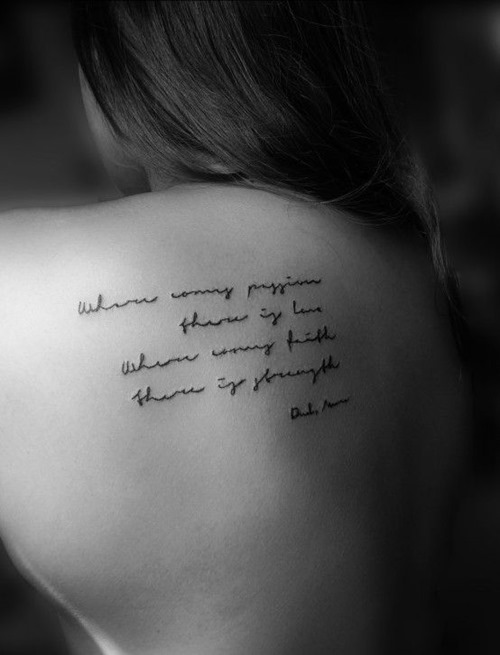 Where comes passion
there is love
Where comes faith
there is strength